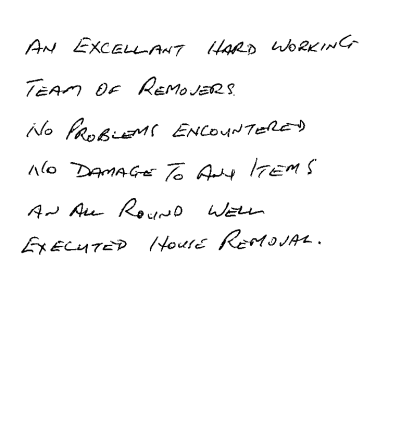 AN EXCELLANT HARD WORKING
TEAM OF REMOVERS.
NO PROBLEMS ENCOUNTERED
NO DAMAGE TO ANY ITEMS
AN ALL ROUND WELL
EXECUTED HOUSE REMOVAL.